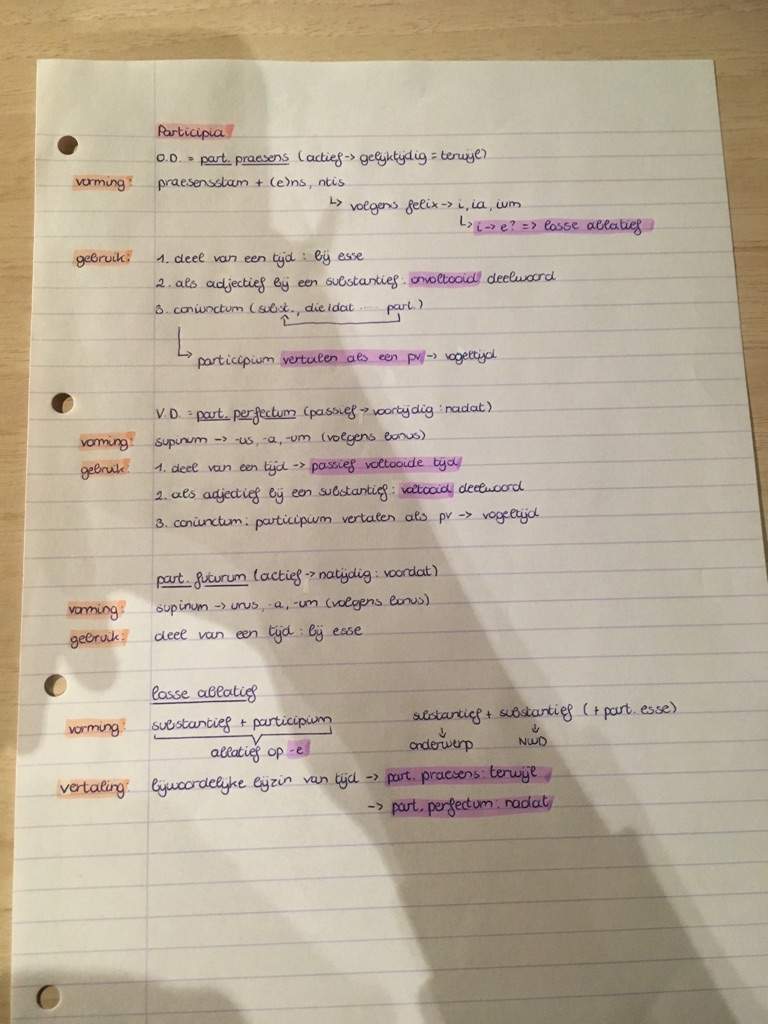 Participia
O.D. = part. praesens (actief → gelijktijdig = terwijl)
vorming: praesensstam + (e)ns, ntis
↳ volgens felix → i, ia, ium
↳ i → e? => losse ablatief
gebruik: 1. deel van een tijd : bij esse
2. als adjectief bij een substantief : onvoltooid deelwoord
3. coniunctum (subst., die/dat ... part.)
↳ participium vertalen als een pv → vogeltijd
V.D. = part. perfectum (passief → voortijdig : nadat)
vorming: supinum → -us, -a, -um (volgens bonus)
gebruik: 1. deel van een tijd → passief voltooide tijd
2. als adjectief bij een substantief : voltooid deelwoord
3. coniunctum : participium vertalen als pv → vogeltijd
part. futurum (actief → natijdig : voordat)
vorming: supinum → urus, -a, -um (volgens bonus)
gebruik: deel van een tijd : bij esse
losse ablatief
vorming: substantief + participium substantief + substantief (+ part. esse)
ablatief op -e ↓ onderwerp ↓ NWD
vertaling: bijwoordelijke bijzin van tijd → part. praesens : terwijl
→ part. perfectum : nadat